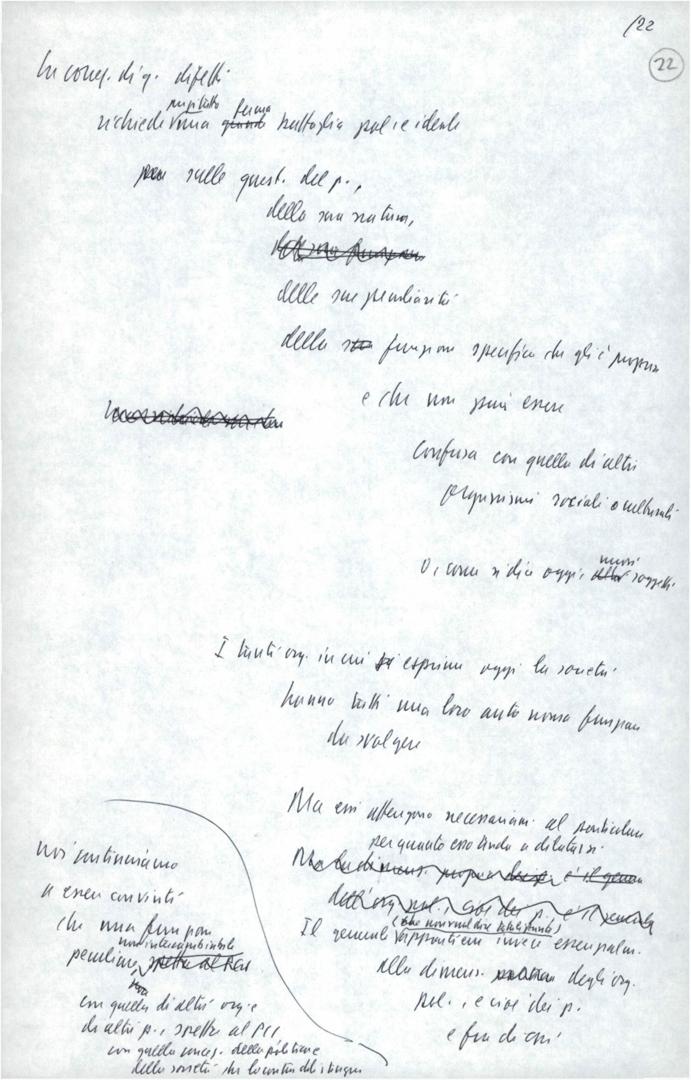 /22
22
In conseg. di q. difetti
anzitutto ferma
richiede una battaglia pol. e ideale
sulle quest. del p.,
della sua natura,
delle sue peculiarità
della funzione specifica che gli è propria
e che non può essere
confusa con quella di altri
organismi sociali o culturali
o, come si dice oggi, nuovi soggetti
I tanti org. in cui si esprime oggi la società
hanno tutti una loro autonoma funzione
da svolgere
Ma essi attengono necessariam. al particolare
per quanto esso tenda a dilatarsi
Il generale
appartiene invece essenzialm.
alla dimens. degli org.
pol., e cioè dei p.
e fra di essi
noi continuiamo
a esser convinti
che una funzione
peculiare, non intercambiabile
con quella di altri org. e
di altri p., spetta al PCI
con quella concez. della politica e
della società che lo contraddistingue